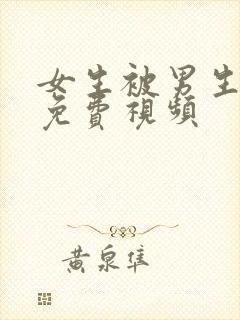 女生被男生
免費視頻
黃泉隼